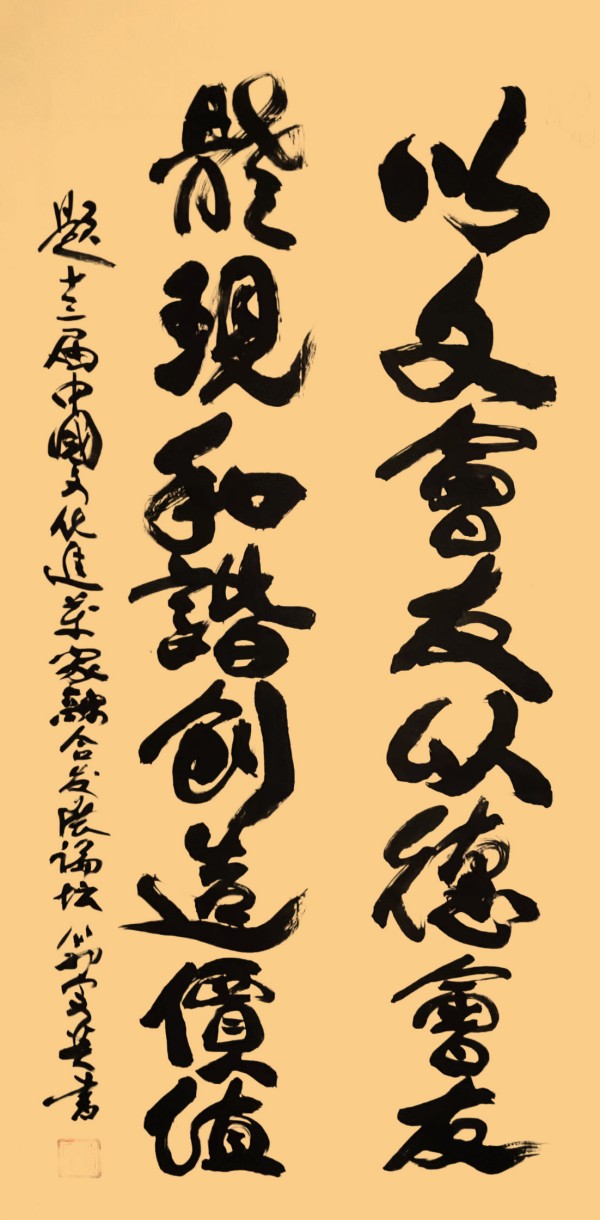 以文會友以德會友
體現和諧創造價值
題十三届中國文化進萬家融合发展論坛 書